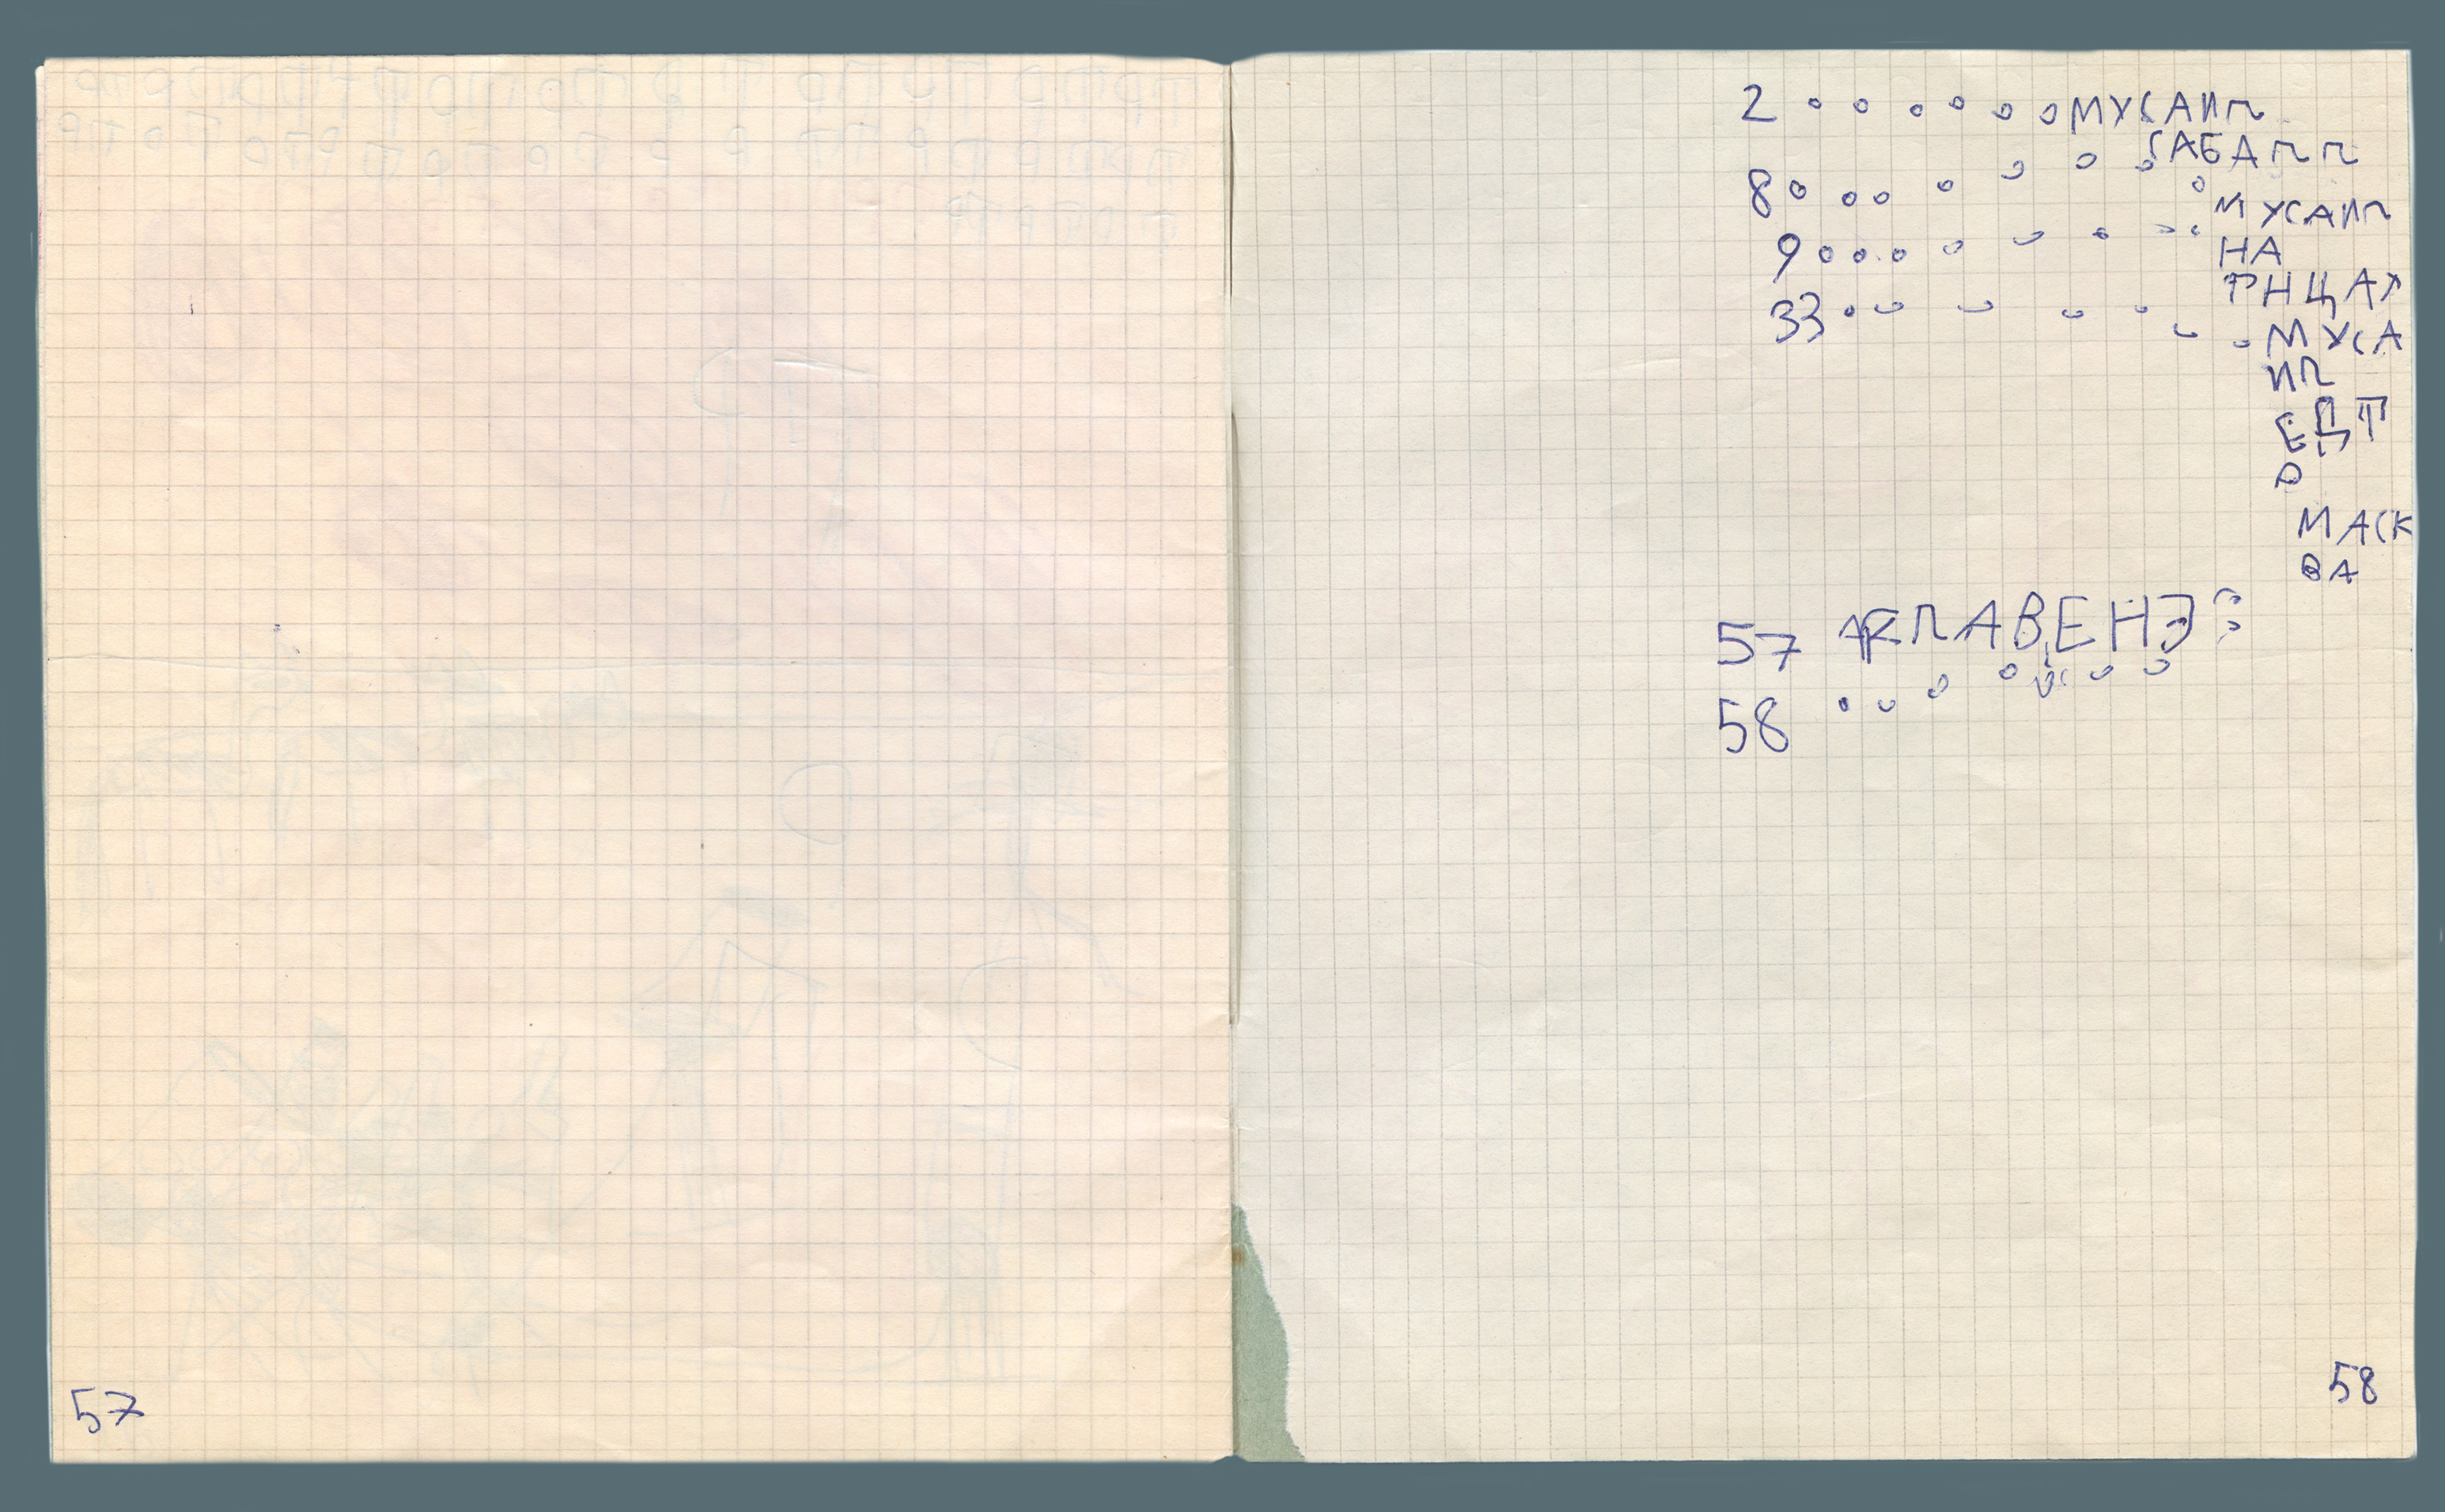 57
2 . . . . . . МУСАИЛ
САБАЛЛ
8 . . . . . . . .
МУСАИЛ
9 . . . . . . . . НА
РНЦАХ
33 . . . . . . . МУСА
ИЛ
ЕДТ
Р
МАСК
ВА
57 АКЛАВЕНЭ:
58 . . . . . . .
58